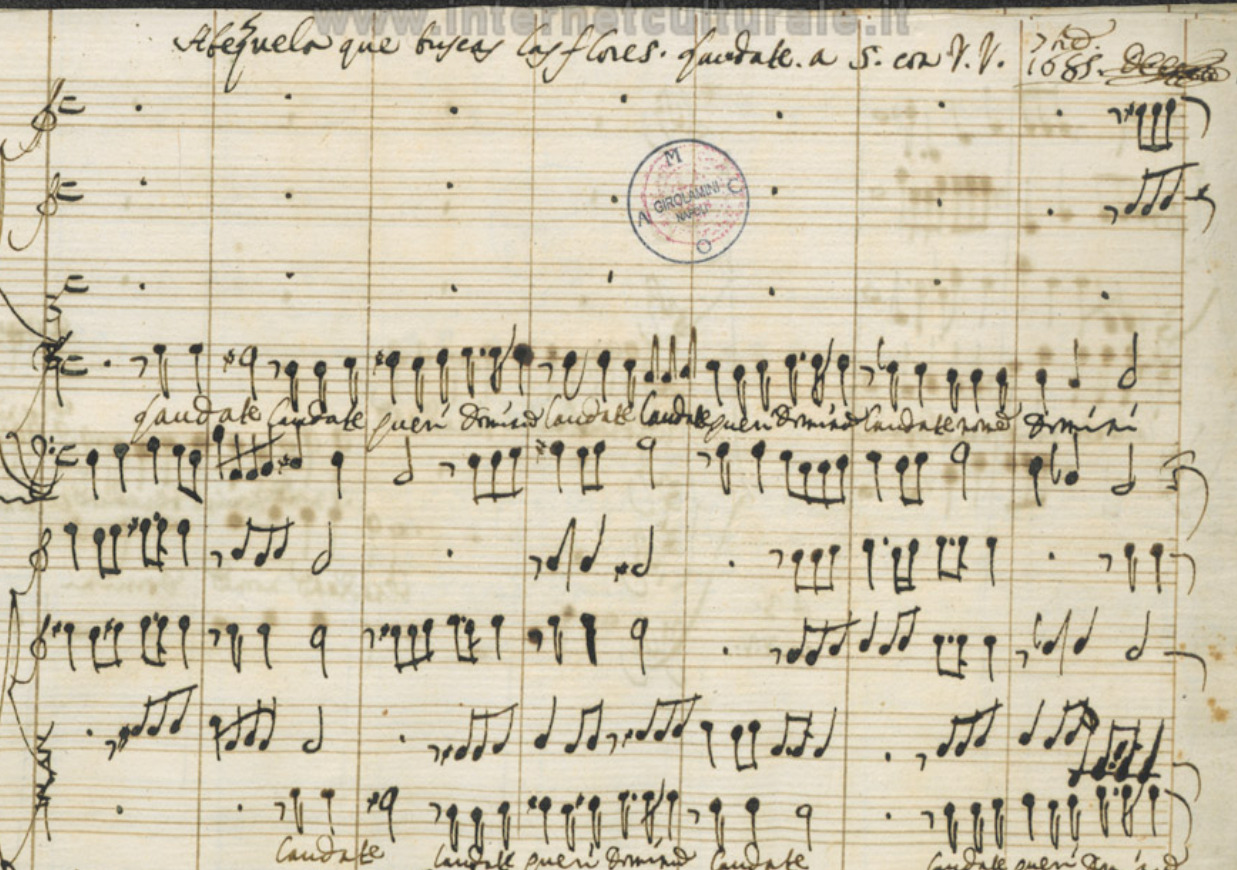 www.internetculturale.it
Abezuela que buscas las flores. Laudate. a 5. con V. V.
1685.
M C A O
GIROLAMINI
NAPOLI
laudate laudate pueri Dominũ laudate laudate pueri Dominũ laudate nomẽ Domini
laudate laudate pueri Dominũ laudate laudate pueri